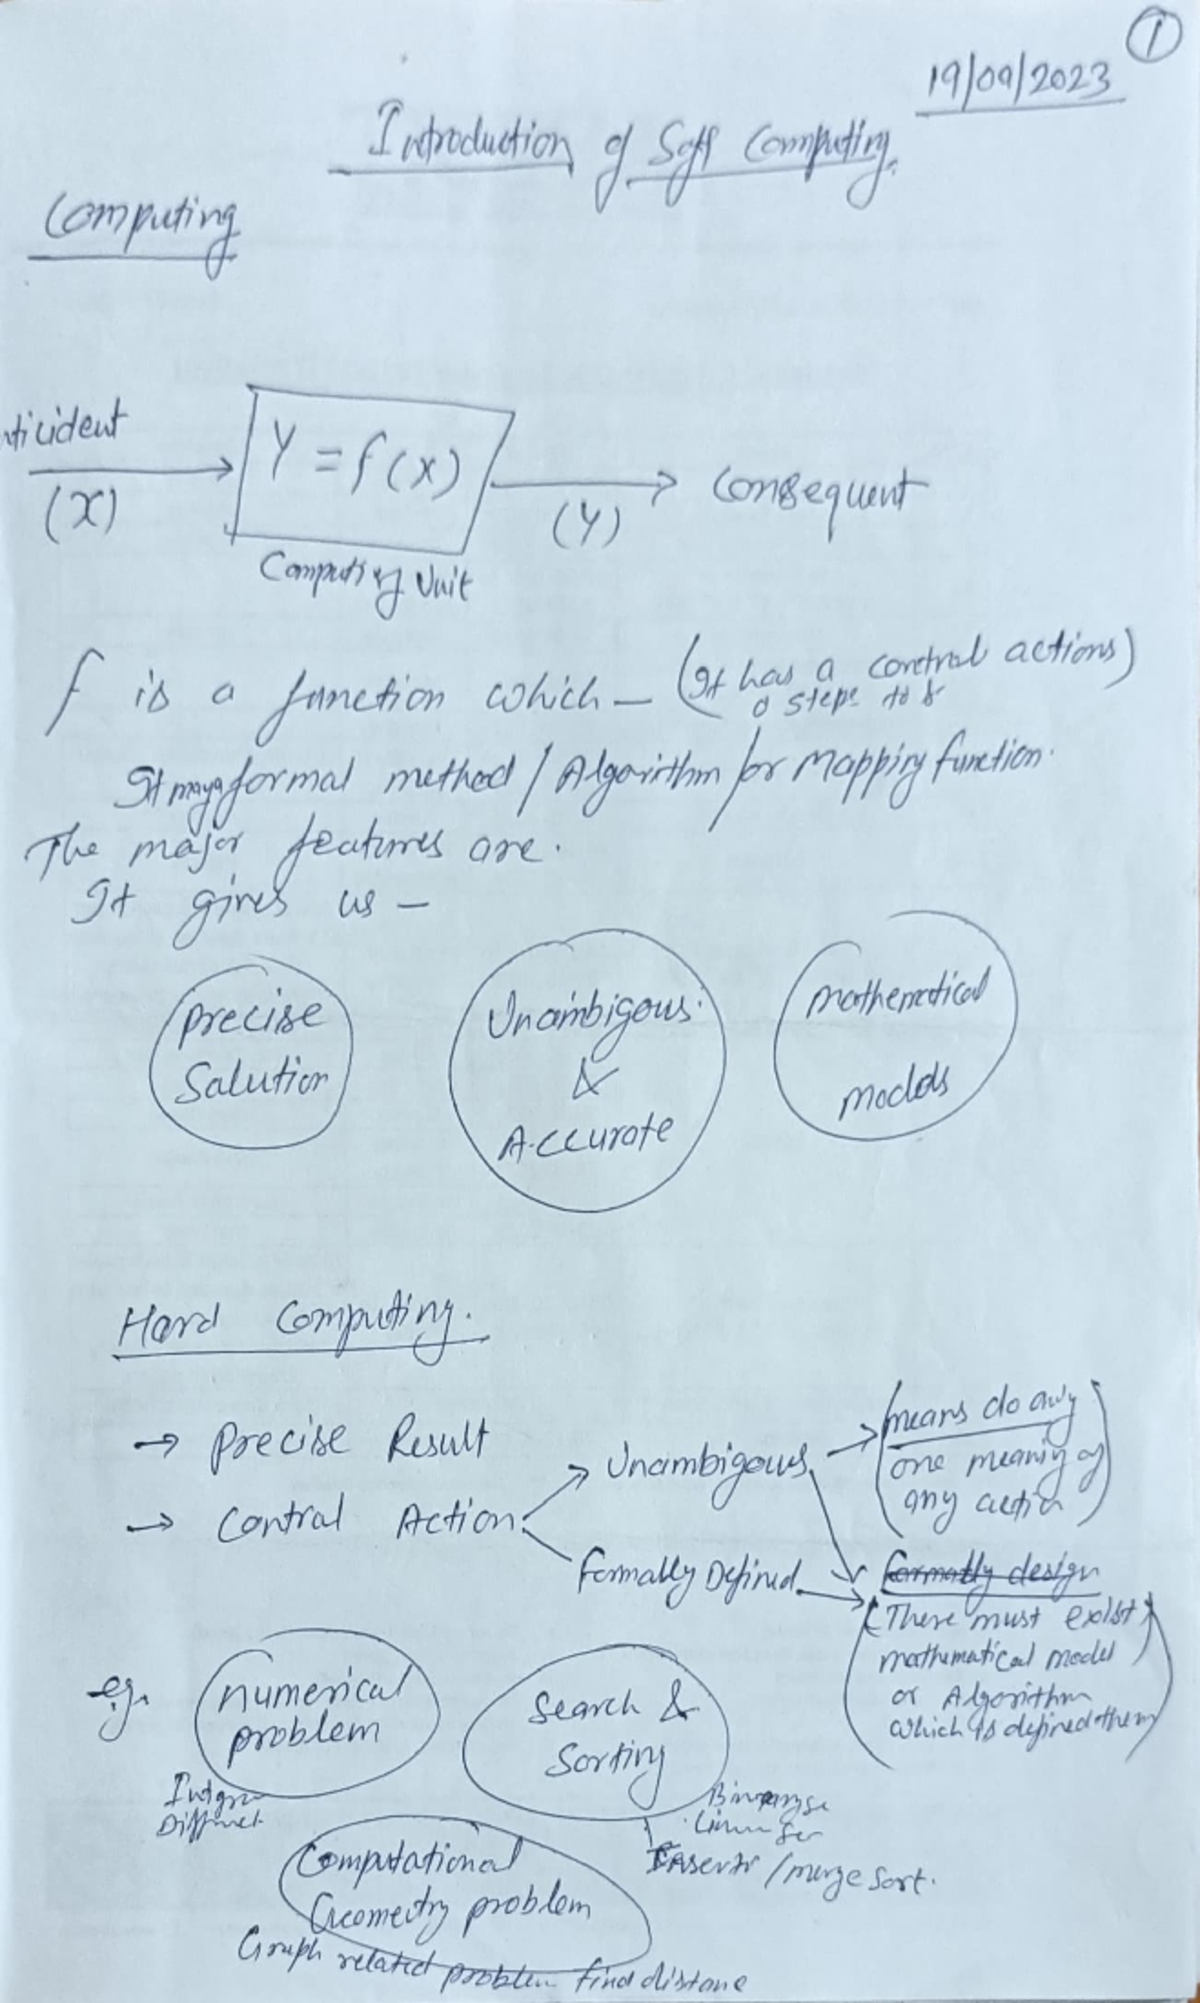 1
19/09/2023
Introduction of Soft Computing.
Computing
nticident
(X)
Y = f(x)
Computing Unit
(Y)
Consequent
f is a function which — (It has a control actions)
steps to
It may a formal method / Algorithm / or Mapping function.
The major features are.
It gives us —
Precise
Salution
Unambigous
&
Accurate
mathematical
models
Hard Computing.
→ Precise Result
→ Control Action.
Unambigous
(means do any
one meaning of
any action)
Formally Defined
formatly design
(There must exist)
mathematical model
or Algorithm
which is defined them
eg.
numerical
problem
Search &
Sorting
Computational
Geometry problem
/ merge sort.
Graph related problem find distane